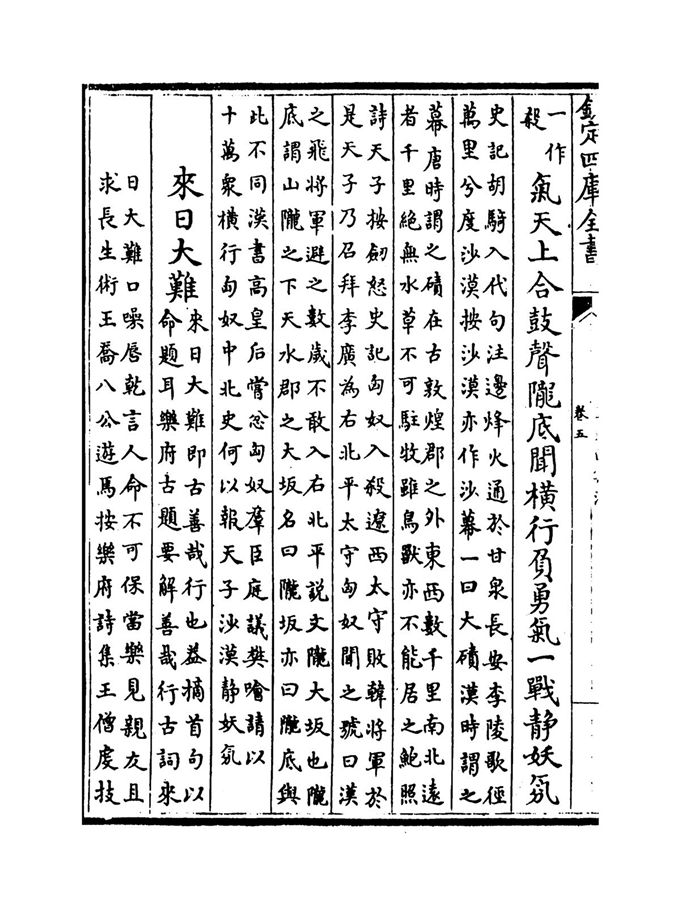 欽定四庫全書
卷五
一作殺
氣天上合鼓聲隴底聞横行負勇氣一戰静妖氛
史記胡騎入代句注邊烽火通於甘泉長安李陵歌徑
萬里兮度沙漠按沙漠亦作沙幕一曰大磧漢時謂之
幕唐時謂之磧在古敦煌郡之外東西數千里南北遠
者千里絶無水草不可駐牧雖鳥獸亦不能居之鮑照
詩天子按劒怒史記匈奴入殺遼西太守敗韓將軍於
是天子乃召拜李廣為右北平太守匈奴聞之號曰漢
之飛將軍避之數歲不敢入右北平説文隴大坂也隴
底謂山隴之下天水郡之大坂名曰隴坂亦曰隴底與
此不同漢書高皇后嘗忿匈奴羣臣庭議樊噲請以
十萬衆横行匈奴中北史何以報天子沙漠静妖氛
來日大難
來日大難即古善哉行也葢摘首句以
命題耳樂府古題要解善哉行古詞來
日大難口噪唇乾言人命不可保當樂見親友且
求長生術王喬八公遊焉按樂府詩集王僧虔技